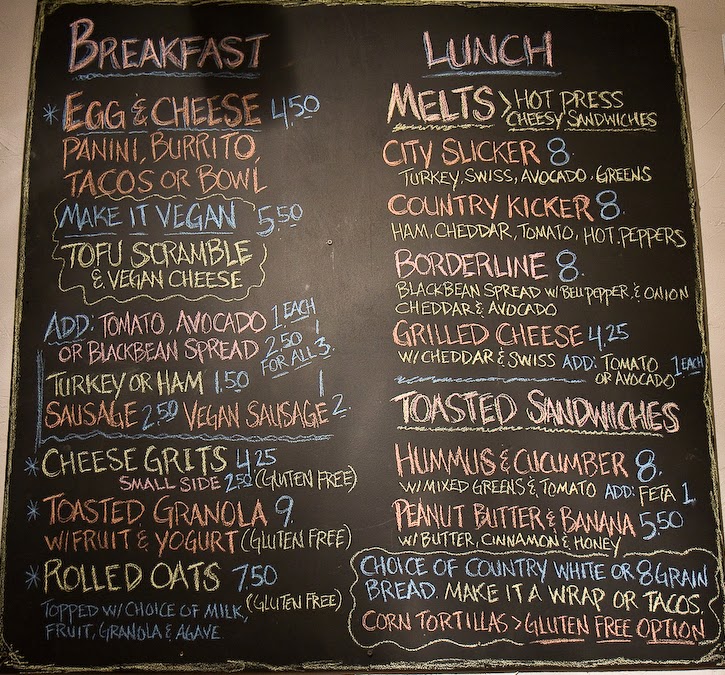 BREAKFAST
* EGG & CHEESE 4.50
PANINI, BURRITO,
TACOS OR BOWL
MAKE IT VEGAN 5.50
TOFU SCRAMBLE
& VEGAN CHEESE
ADD: TOMATO, AVOCADO 1 EACH
OR BLACKBEAN SPREAD 2.50
FOR ALL 3.
TURKEY OR HAM 1.50
SAUSAGE 2.50 VEGAN SAUSAGE 2.
* CHEESE GRITS 4.25
SMALL SIDE 2.50 (GLUTEN FREE)
* TOASTED GRANOLA 9.
W/FRUIT & YOGURT (GLUTEN FREE)
* ROLLED OATS 7.50
(GLUTEN FREE)
TOPPED W/ CHOICE OF MILK,
FRUIT, GRANOLA & AGAVE
LUNCH
MELTS > HOT PRESS
CHEESY SANDWICHES
CITY SLICKER 8.
TURKEY, SWISS, AVOCADO, GREENS
COUNTRY KICKER 8.
HAM, CHEDDAR, TOMATO, HOT PEPPERS
BORDERLINE 8.
BLACKBEAN SPREAD W/ BELLPEPPER, & ONION
CHEDDAR & AVOCADO
GRILLED CHEESE 4.25
W/ CHEDDAR & SWISS ADD: TOMATO
OR AVOCADO 1 EACH
TOASTED SANDWICHES
HUMMUS & CUCUMBER 8.
W/ MIXED GREENS & TOMATO ADD: FETA 1.
PEANUT BUTTER & BANANA 5.50
W/ BUTTER, CINNAMON & HONEY
CHOICE OF COUNTRY WHITE OR 8 GRAIN
BREAD. MAKE IT A WRAP OR TACOS.
CORN TORTILLAS > GLUTEN FREE OPTION